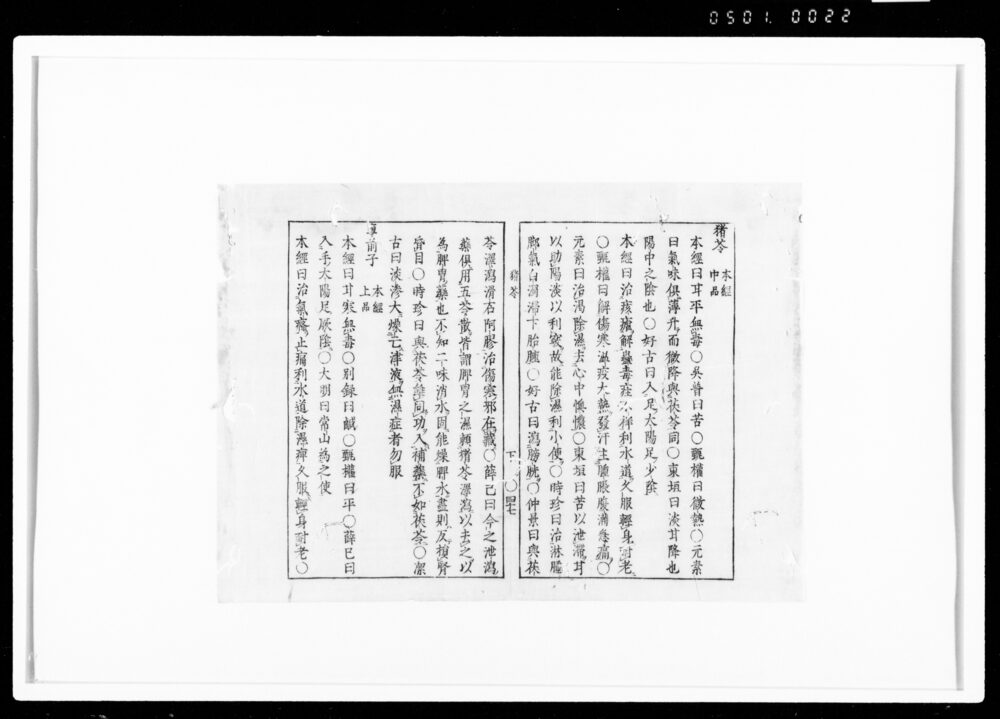 0501.0022
猪苓 本經中品
本經曰甘平無毒〇吳普曰苦〇甄權曰微熱〇元素
曰氣味俱薄升而微降與茯苓同〇東垣曰淡甘降也
陽中之陰也〇好古曰入足太陽足少陰
本經曰治痎瘧解蠱毒疰不祥利水道久服輕身耐老
〇甄權曰解傷寒溫疫大熱發汗主腫脹腹滿急痛〇
元素曰治渴除濕去心中懊憹〇東垣曰苦以泄滯甘
以助陽淡以利竅故能除濕利小便〇時珍曰治淋腫
脚氣白濁滯下胎腫〇好古曰瀉膀胱〇仲景曰與茯
猪苓
下 〇四七
苓澤瀉滑石阿膠治傷寒邪在臟〇薛己曰今之泄瀉
藥俱用五苓散皆謂脾胃之濕頼猪苓澤瀉以去之以
為脾胃藥也不知二味消水固能燥脾水盡則反損腎
昏目〇時珍曰與茯苓雖同功入補藥不如茯苓〇潔
古曰淡滲大燥亡津液無濕症者勿服
車前子 本經上品
本經曰甘寒無毒〇別錄曰鹹〇甄權曰平〇薛己曰
入手太陽足厥陰〇大明曰常山為之使
本經曰治氣癃止痛利水道除濕痺久服輕身耐老〇